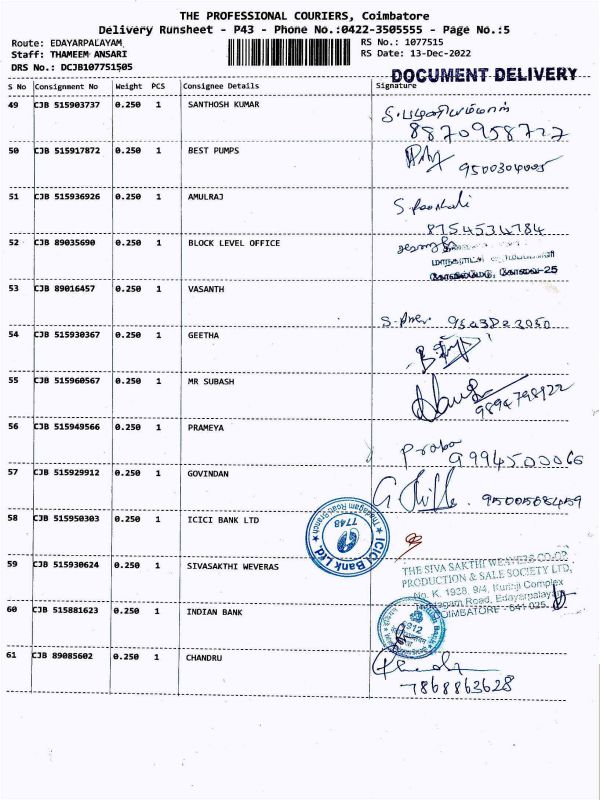 THE PROFESSIONAL COURIERS, Coimbatore
Delivery Runsheet - P43 - Phone No.:0422-3505555 - Page No.:5
Route: EDAYARPALAYAM
RS No.: 1077515
Staff: THAMEEM ANSARI
RS Date: 13-Dec-2022
DRS No.: DCJB107751505
DOCUMENT DELIVERY
S No Consignment No Weight PCS Consignee Details Signature
49 CJB 515903737 0.250 1 SANTHOSH KUMAR
8870958727
50 CJB 515917872 0.250 1 BEST PUMPS
9500304005
51 CJB 515936926 0.250 1 AMULRAJ
8754534784
52 CJB 89035690 0.250 1 BLOCK LEVEL OFFICE
கோவில்மேடு, கோவை-25
53 CJB 89016457 0.250 1 VASANTH
54 CJB 515930367 0.250 1 GEETHA
55 CJB 515960567 0.250 1 MR SUBASH
9894798122
56 CJB 515949566 0.250 1 PRAMEYA
Praba
9994500066
57 CJB 515929912 0.250 1 GOVINDAN
58 CJB 515950303 0.250 1 ICICI BANK LTD
ICICI Bank Ltd.
Thadagam Road Branch
7748
59 CJB 515930624 0.250 1 SIVASAKTHI WEVERAS
THE SIVA SAKTHI WEAVERS CO-OP
PRODUCTION & SALE SOCIETY LTD,
No. K. 1938, 9/4, Kurinji Complex
Thadagam Road, Edayarpalayam
COIMBATORE - 641 025.
60 CJB 515881623 0.250 1 INDIAN BANK
Indian Bank
61 CJB 89085602 0.250 1 CHANDRU
7868863628